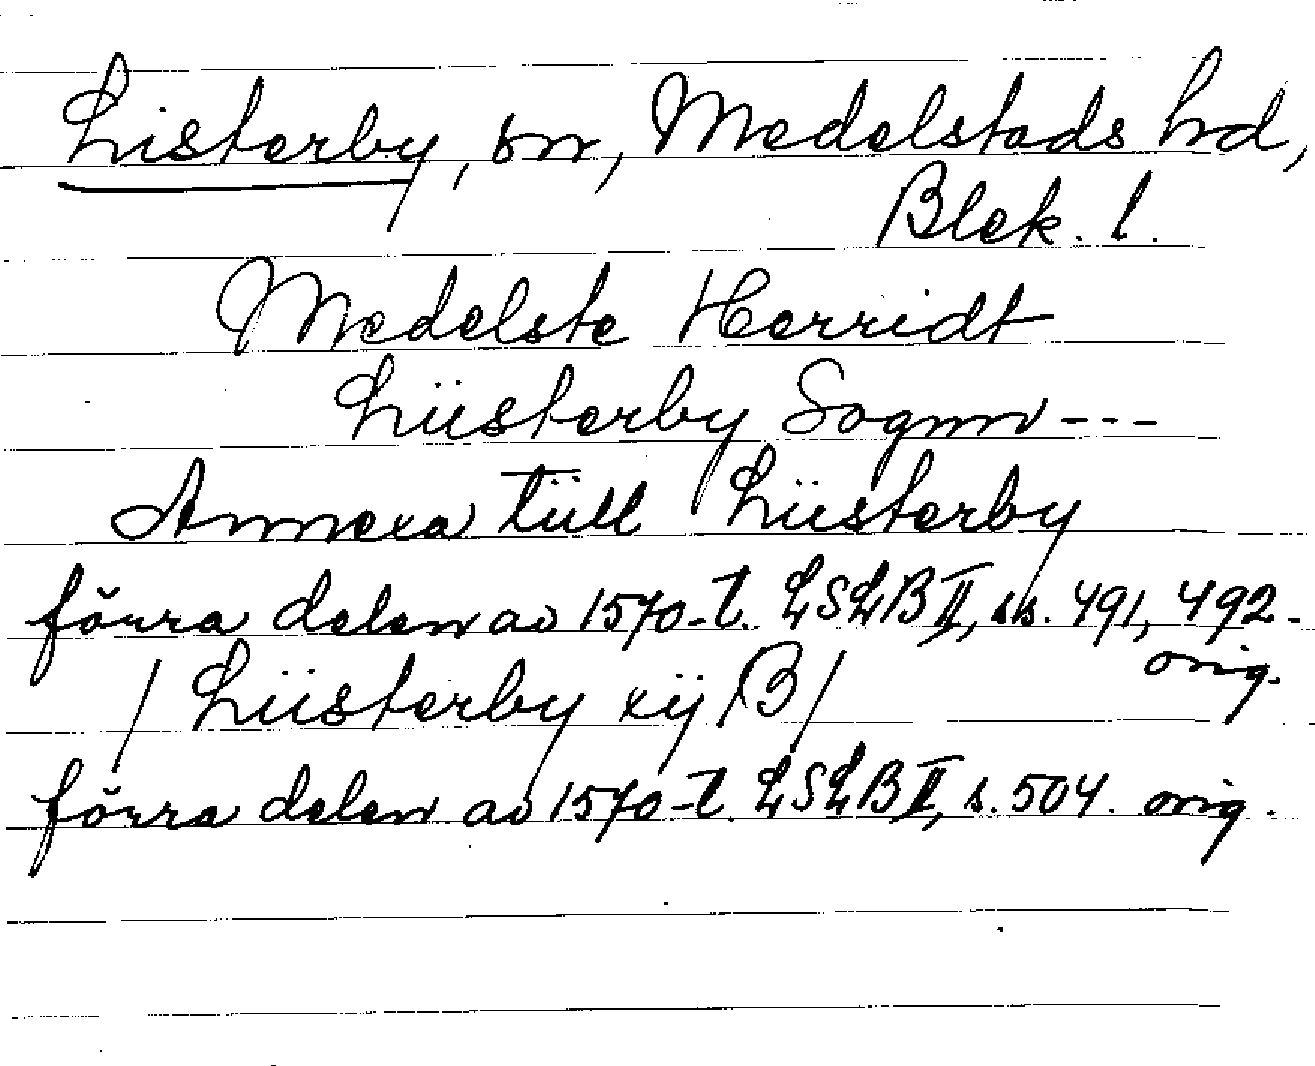 Listerby, sn, Medelstads hd,
Blek. l.
Medelste Herridt
Lüsterby Sognn ---
Annexa tüll Lüsterby
förra delen av 1570-t. LSLB II, ss. 491, 492.
orig.
/ Lüsterby xij B /
förra delen av 1570-t. LSLB II, s. 504. orig.